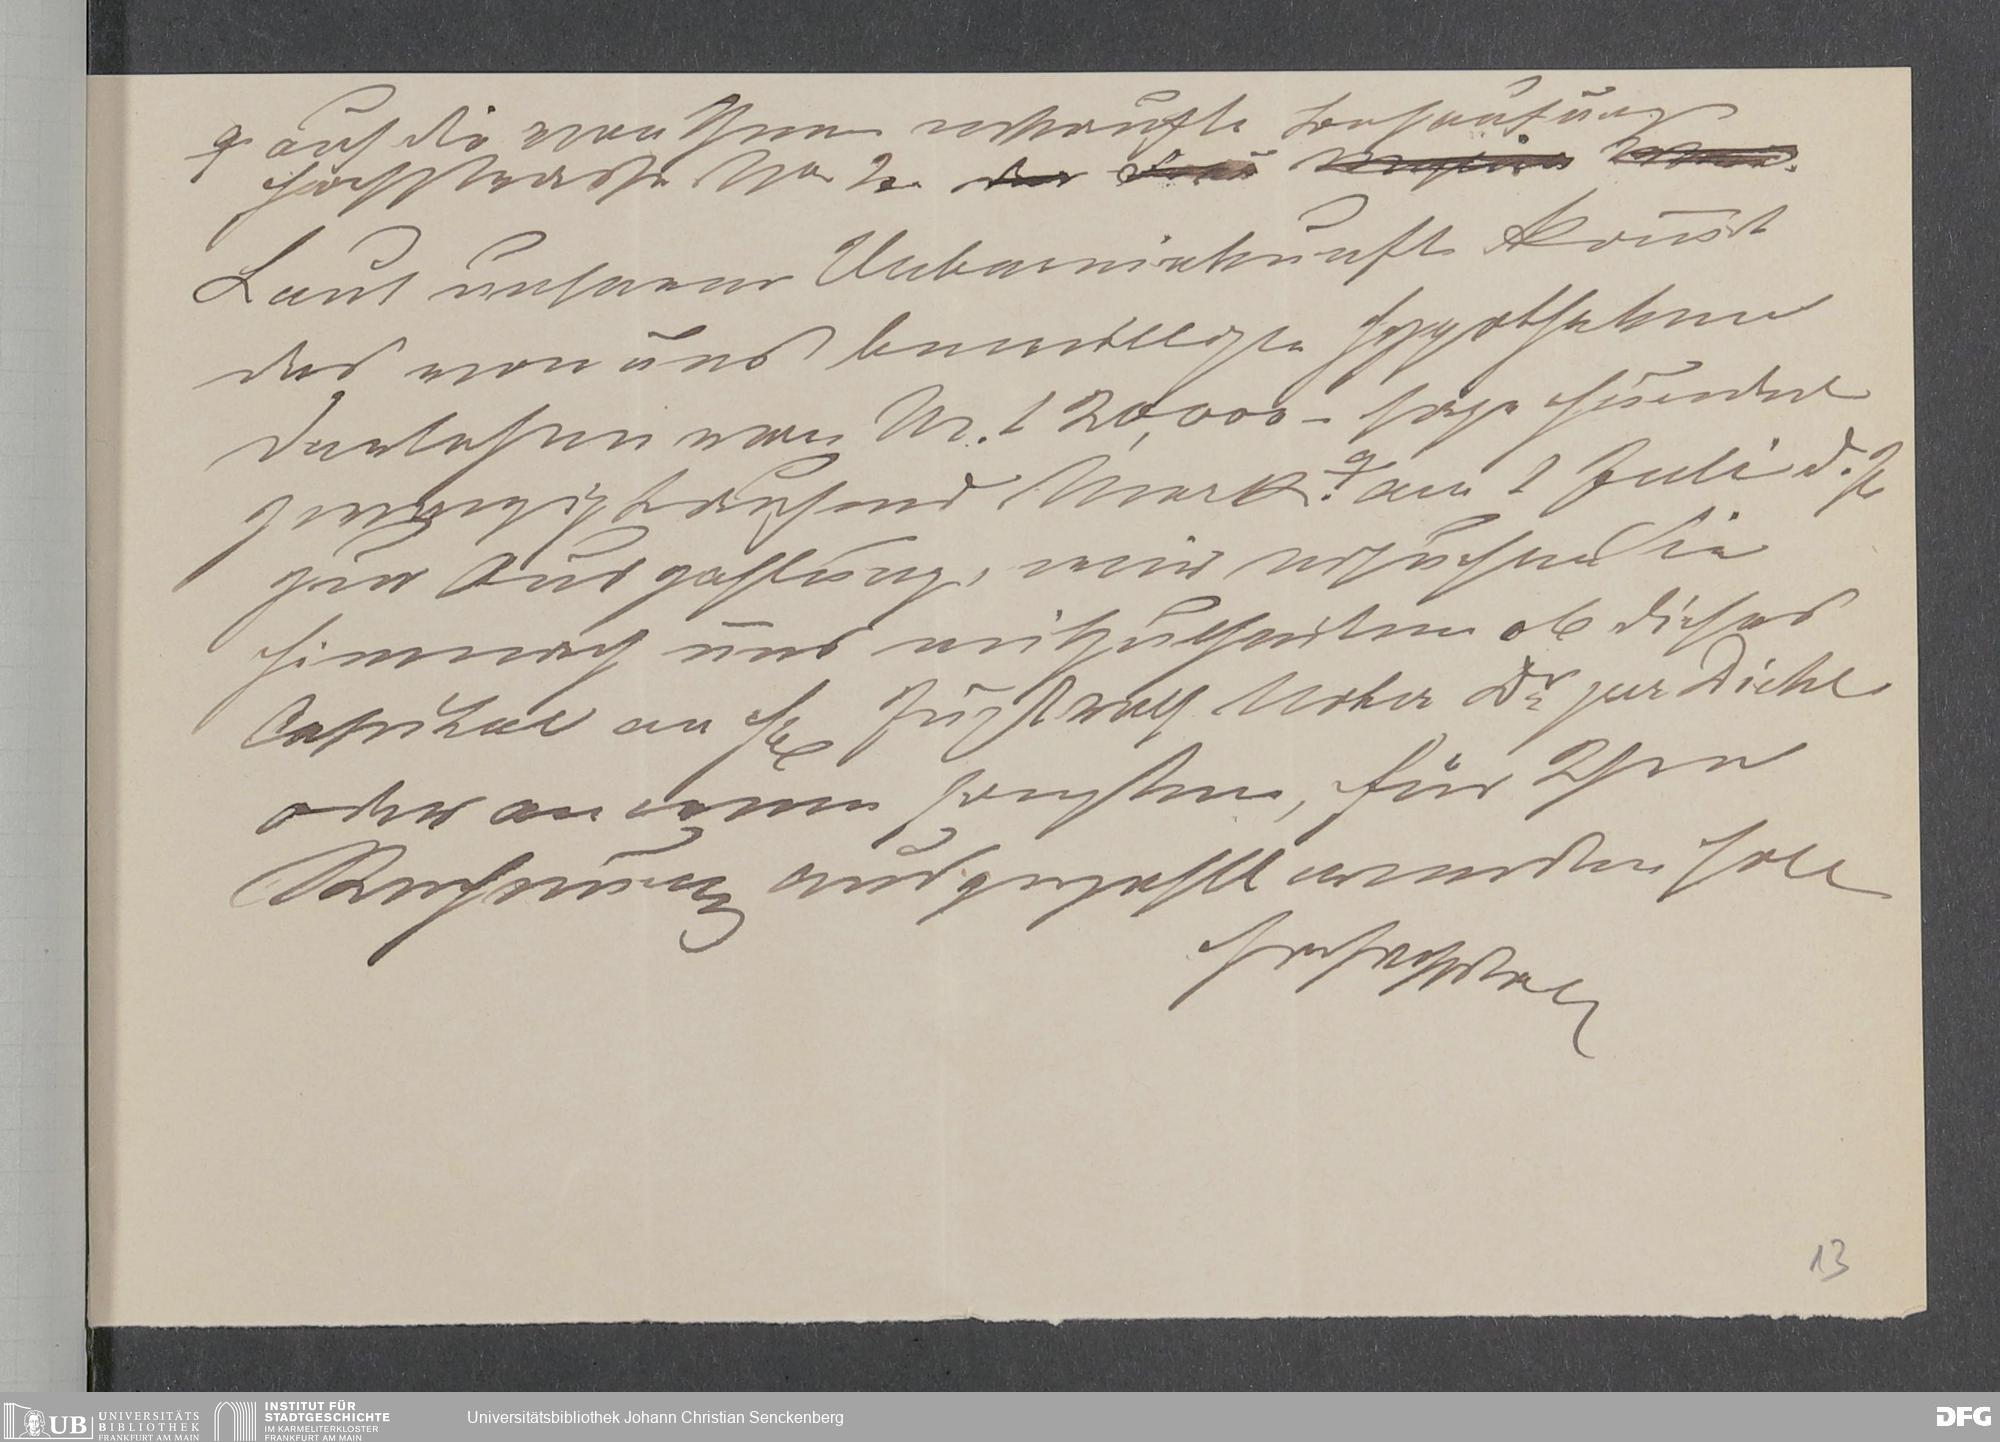 auf die von Ihnen erkaufte Behausung
Hochstrasse No 2.
Laut unserer Uebereinkunft kommt
das von uns bewilligte Hypotheken
Darlehen von M. 120,000 – sage hundert
zwanzigtausend Mark am 1 Juli d. J.
zur Auszahlung, wir ersuchen Sie
hiernach uns mitzutheilen ob dieses
Capital an H. Justizrath Dr. jur
oder an einen sonstigen, für Ihre
Rechnung ausgezahlt werden soll
Hochachtend
13
UB UNIVERSITÄTS
BIBLIOTHEK
FRANKFURT AM MAIN
INSTITUT FÜR
STADTGESCHICHTE
IM KARMELITERKLOSTER
FRANKFURT AM MAIN
Universitätsbibliothek Johann Christian Senckenberg
DFG